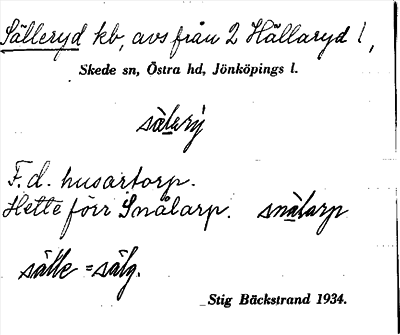 Sälleryd kb, avs från 2 Hällaryd 1,
Skede sn, Östra hd, Jönköpings l.
sä̀lery
F. d. husartorp.
Hette förr Snålarp. snàlarp
sälle = sälg.
Stig Bäckstrand 1934.